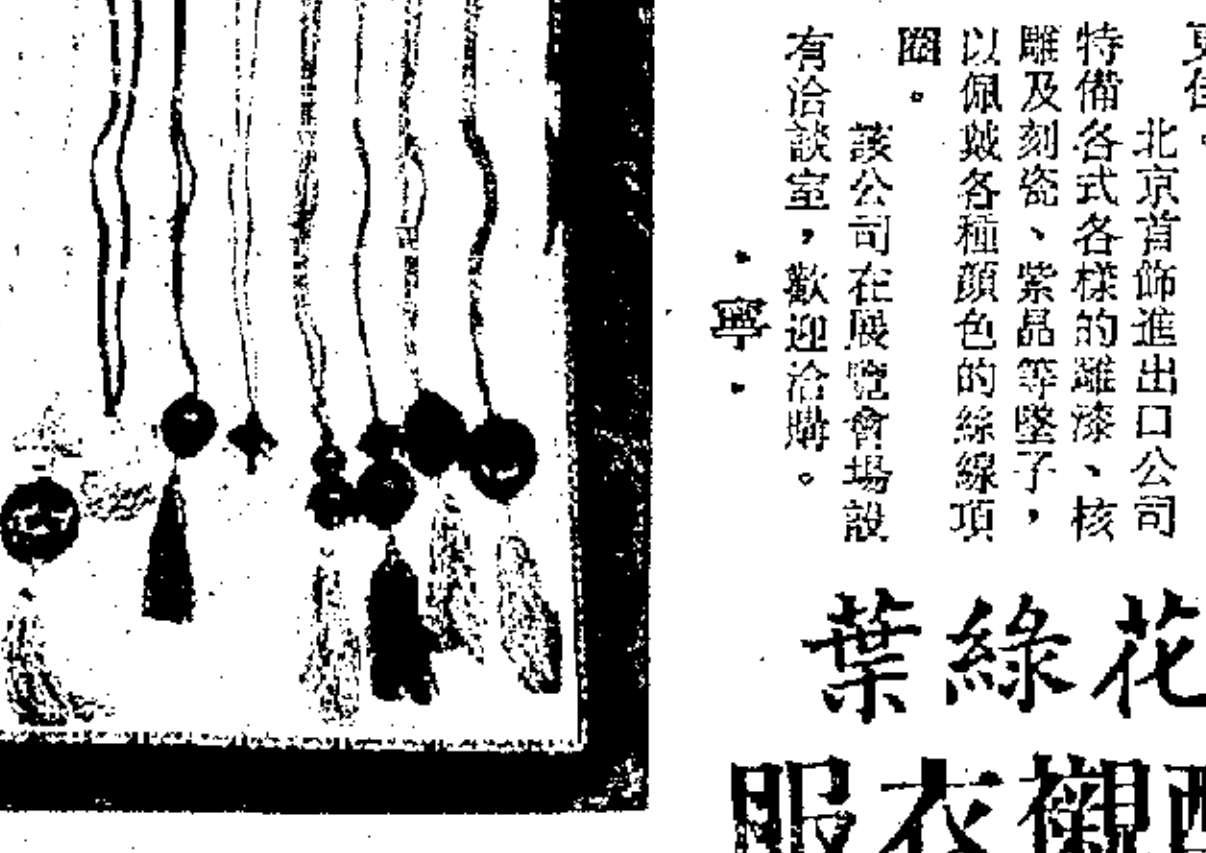 更佳。
北京首飾進出口公司
特備各式各樣的雕漆、核
雕及刻瓷、紫晶等墜子，
以佩戴各種顏色的絲線項
圈。
該公司在展覽會場設
有洽談室，歡迎洽購。
·寧·
花綠葉
配襯衣服